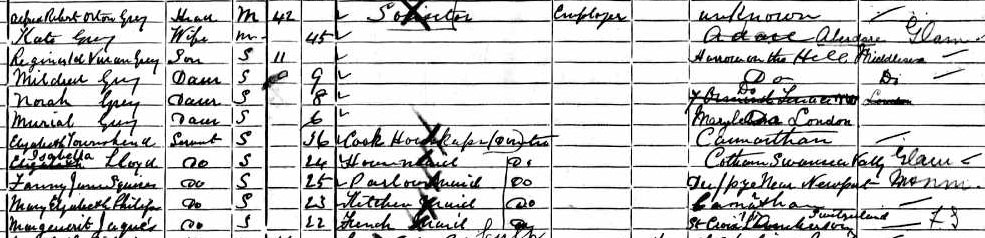 Alfred Robert Orton Grey Head M 42 Solicitor Employer unknown
Kate Grey Wife M 45 Aberdare Glam
Reginald Vivian Grey Son S 11 Harrow on the Hill Middlesex
Mildred Grey Daur S 9 Do Do
Norah Grey Daur S 8 Do London
Murial Grey Daur S 6 Marylebone London
Elizabeth Townshend Servt S 36 Cook Housekeeper (Domestic) Camarthan
Isabella Lloyd Do S 24 Housemaid Do Swansea Vally Glam
Fanny Jane Squires Do S 25 Parlourmaid Do Near Newport Monm
Mary Elizabeth Philips Do S 23 Kitchen Maid Do Camathan
Marguerit Jaques Do S 22 French Maid Do St Croix Switzerland FS